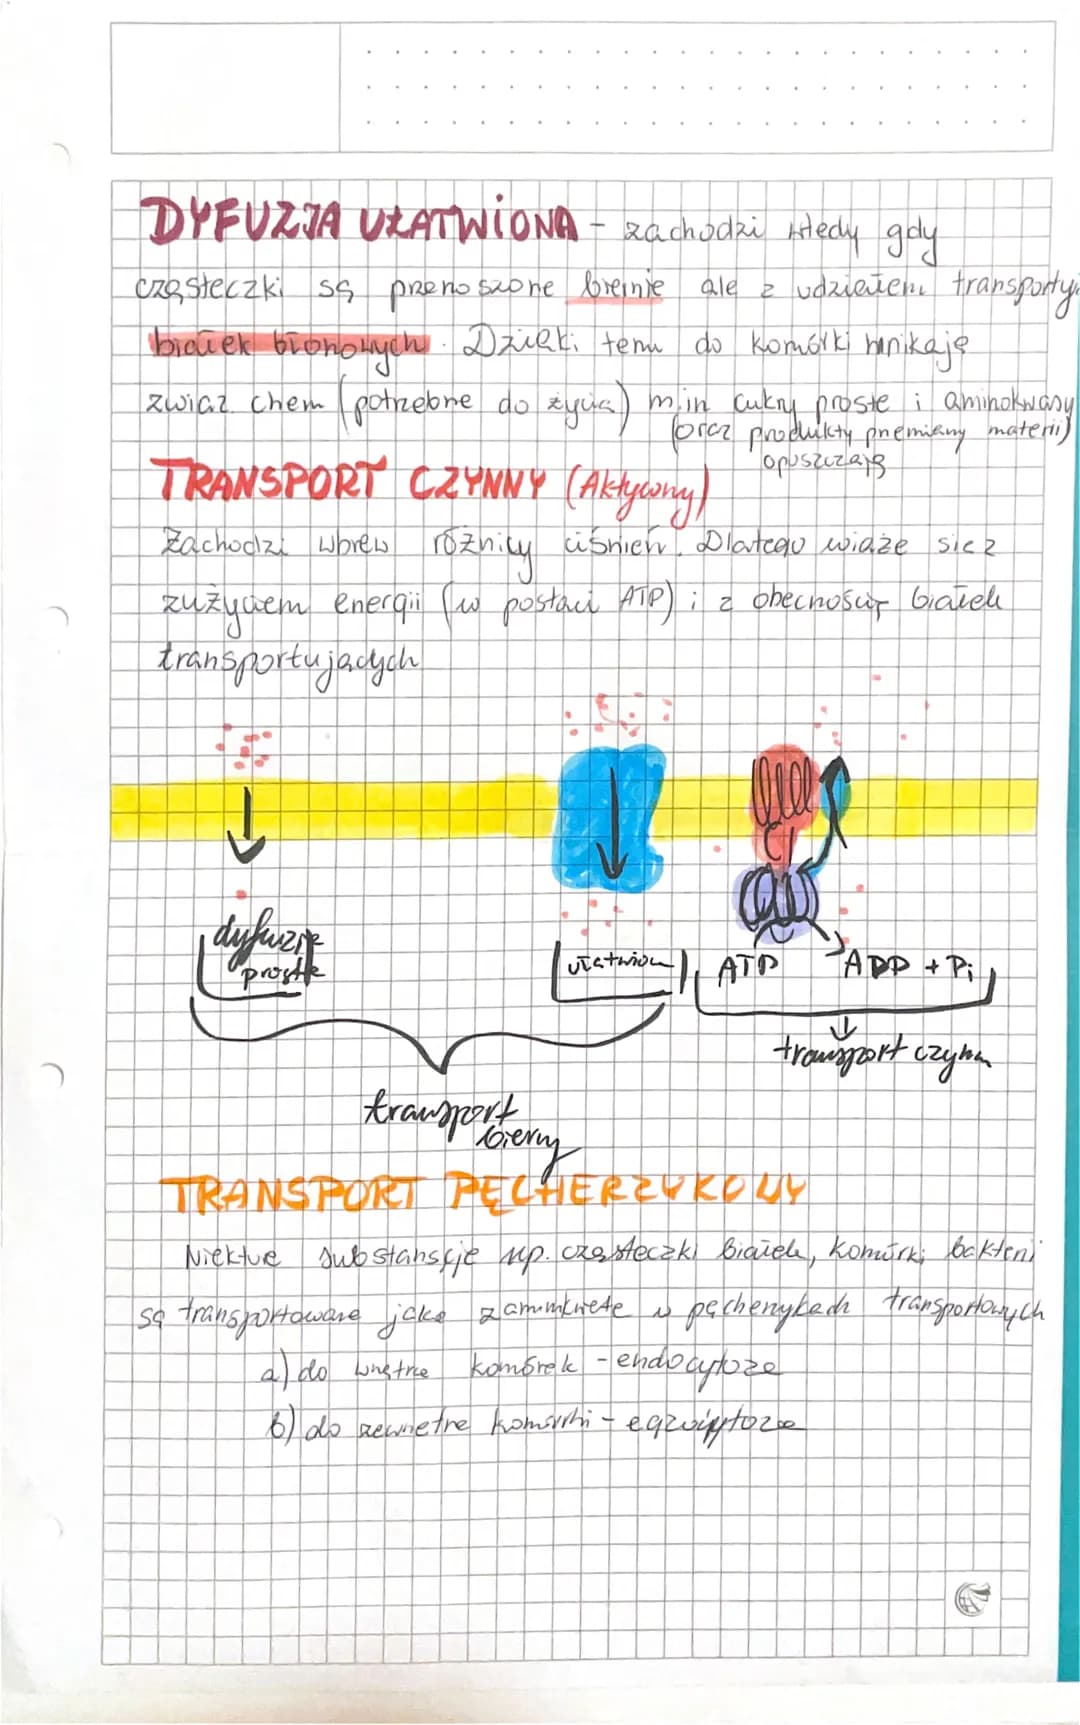 DYFUZJA UŁATWIONA - zachodzi wtedy gdy
cząsteczki są przenoszone biernie ale z udziałem
białek błonowych. Dzięki temu do komórki wnikają
związ. chem (potrzebne do życia) m.in cukry proste i aminokwasy
(oraz produkty przemiany materii)
opuszczają
TRANSPORT CZYNNY (Aktywny)
Zachodzi wbrew różnicy ciśnień. Dlatego wiąże się z
zużyciem energii (w postaci ATP) i z obecnością białek
transportujących
dyfuzja
prosta
ułatwion
ATP
ADP + Pi
transport czynn
transport
bierny
TRANSPORT PĘCHERZYKOWY
Niektóre substanscje np. cząsteczki białek, komórki bakterii
są transportowane jako zammknięte w pęcherzykach transportowych
a) do wnętrza komórek - endocytoza
b) do zewnętrz komórki -